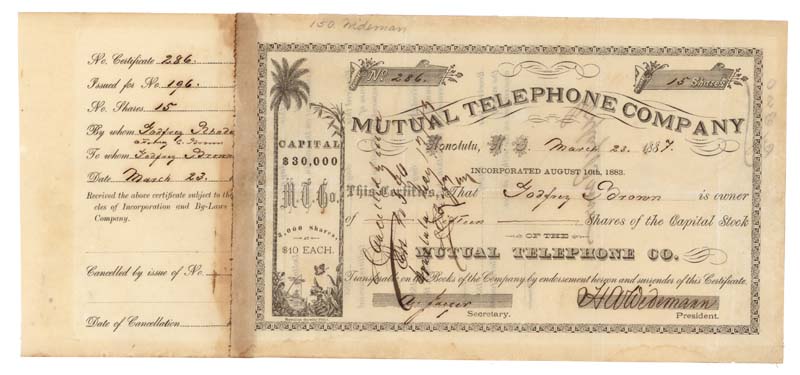 150 Wideman
No. Certificate 286.
Issued for No. 196.
No. Shares 15
By whom Godfrey Rhodes
To whom Godfrey Brown
Date March 23.
Received the above certificate subject to the
cles of Incorporation and By-Laws
Company.
Cancelled by issue of No.
Date of Cancellation
CAPITAL
$30,000
M.T.Co.
3,000 Shares,
at
$10 EACH.
No. 286.
15 Shares
MUTUAL TELEPHONE COMPANY
Honolulu, H. I. March 23. 1887.
INCORPORATED AUGUST 16th, 1883.
This Certifies, That Godfrey Brown is owner
of Fifteen Shares of the Capital Stock
OF THE
MUTUAL TELEPHONE CO.
Transferable on the Books of the Company by endorsement hereon and surrender of this Certificate.
Secretary.
H. A. Widemann
President.
Cancelled
Honolulu